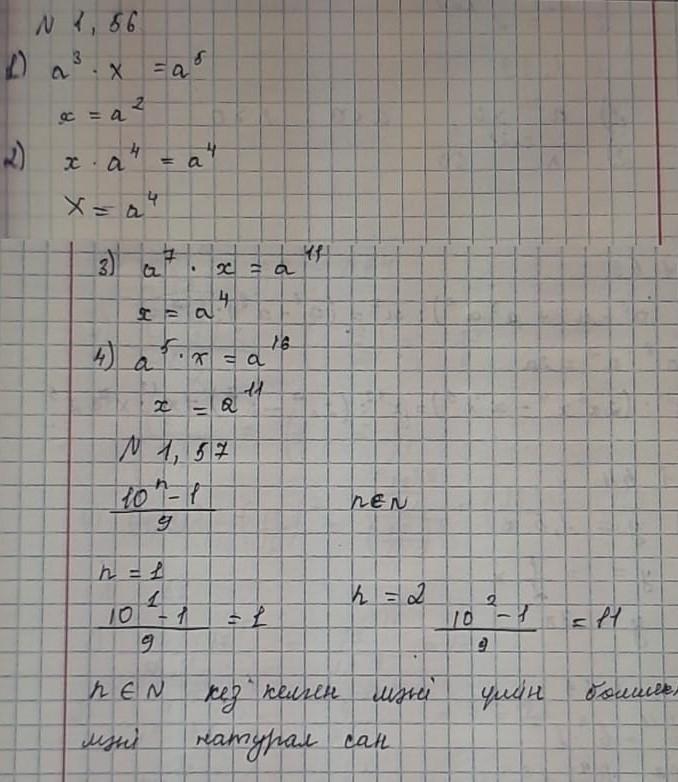 N 1,56
1) a³ · x = a⁵
x = a²
2) x · a⁴ = a⁴
x = a⁴
3) a⁷ · x = a¹¹
x = a⁴
4) a⁵ · x = a¹⁶
x = a¹¹
N 1,57
(10ⁿ - 1)/9 n ∈ N
n = 1 n = 2
(10¹ - 1)/9 = 1 (10² - 1)/9 = 11
n ∈ N кез келген мәні үшін бөлшек
мәні натурал сан